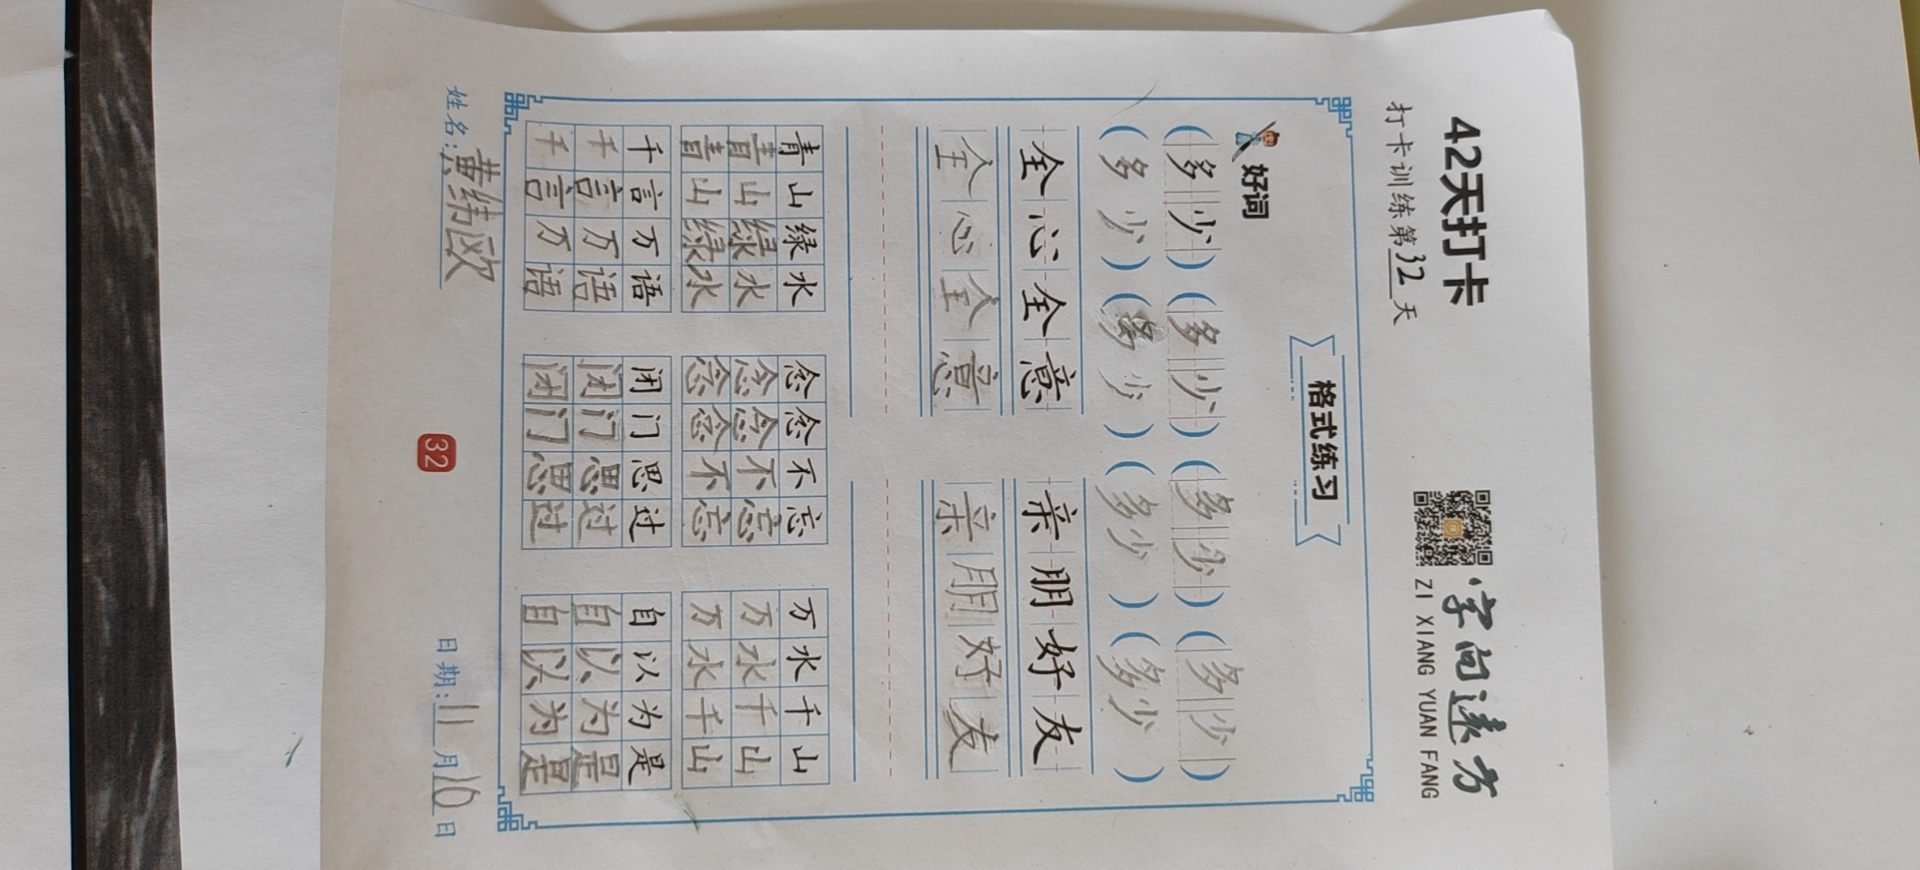 42天打卡
打卡训练第32天
字向远方
ZI XIANG YUAN FANG
格式练习
好词
(多少)(多少)(多少)(多少)
(多少)(多少)(多少)(多少)
全心全意 亲朋好友
全心全意 亲朋好友
青山绿水 念念不忘 万水千山
青山绿水 念念不忘 万水千山
青山绿水 念念不忘 万水千山
千言万语 闭门思过 自以为是
千言万语 闭门思过 自以为是
千言万语 闭门思过 自以为是
姓名:黄纬欧 日期:11月10日
32